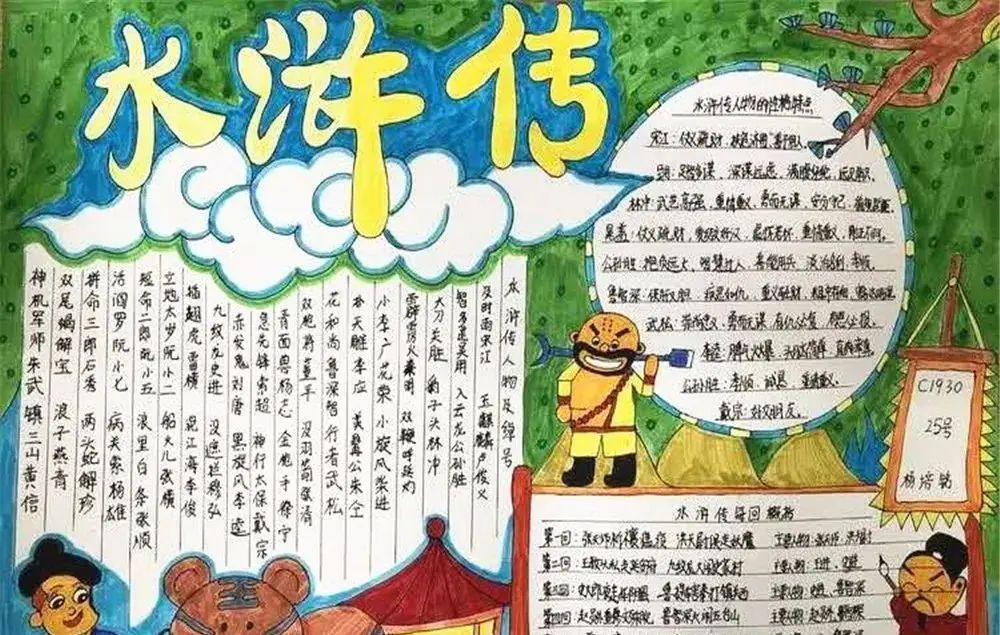 水浒传
水浒传人物及绰号
及时雨宋江 玉麒麟卢俊义
智多星吴用 入云龙公孙胜
大刀关胜 豹子头林冲
霹雳火秦明 双鞭呼延灼
小李广花荣 小旋风柴进
扑天雕李应 美髯公朱仝
花和尚鲁深智 行者武松
双枪将董平 没羽箭张清
青面兽杨志 金枪手徐宁
急先锋索超 神行太保戴宗
赤发鬼刘唐 黑旋风李逵
九纹龙史进 没遮拦穆弘
插翅虎雷横 混江海李俊
立地太岁阮小二 船火儿张横
短命二郎阮小五 浪里白条张顺
活阎罗阮小七 病关索杨雄
拼命三郎石秀 两头蛇解珍
双尾蝎解宝 浪子燕青
神机军师朱武 镇三山黄信
水浒传人物的性格特点
宋江：仗义疏财，善用人。
足智多谋，深谋远虑，满腹经纶，远见卓识
林冲：武艺高强，重情重义，勇而无谋，安分守己，
晁盖：仗义疏财，重情重义，刚正不阿。
公孙胜：抱负远大，智慧过人，善用兵，淡泊名利，孝顺
鲁智深：疾恶如仇，重义轻财，粗中有细，豁达明理
武松：崇尚忠义，勇而无谋，有仇必复，有恩必报。
李逵：脾气火爆，头脑简单，直爽率真。
公孙胜：孝顺，诚恳，重情重义。
戴宗：好交朋友。
C1930
25号
水浒传每回概括
第一回：张天师祈禳瘟疫 洪太尉误走妖魔 主要人物：张天师、洪太尉
第二回：王教头私走延安府 九纹龙大闹史家村 主要人物：王进、史进
第三回：史大郎夜走华阴县 鲁提辖拳打镇关西 主要人物：史进、鲁智深
第四回：赵员外重修文殊院 鲁智深大闹五台山 主要人物：赵员外、鲁智深